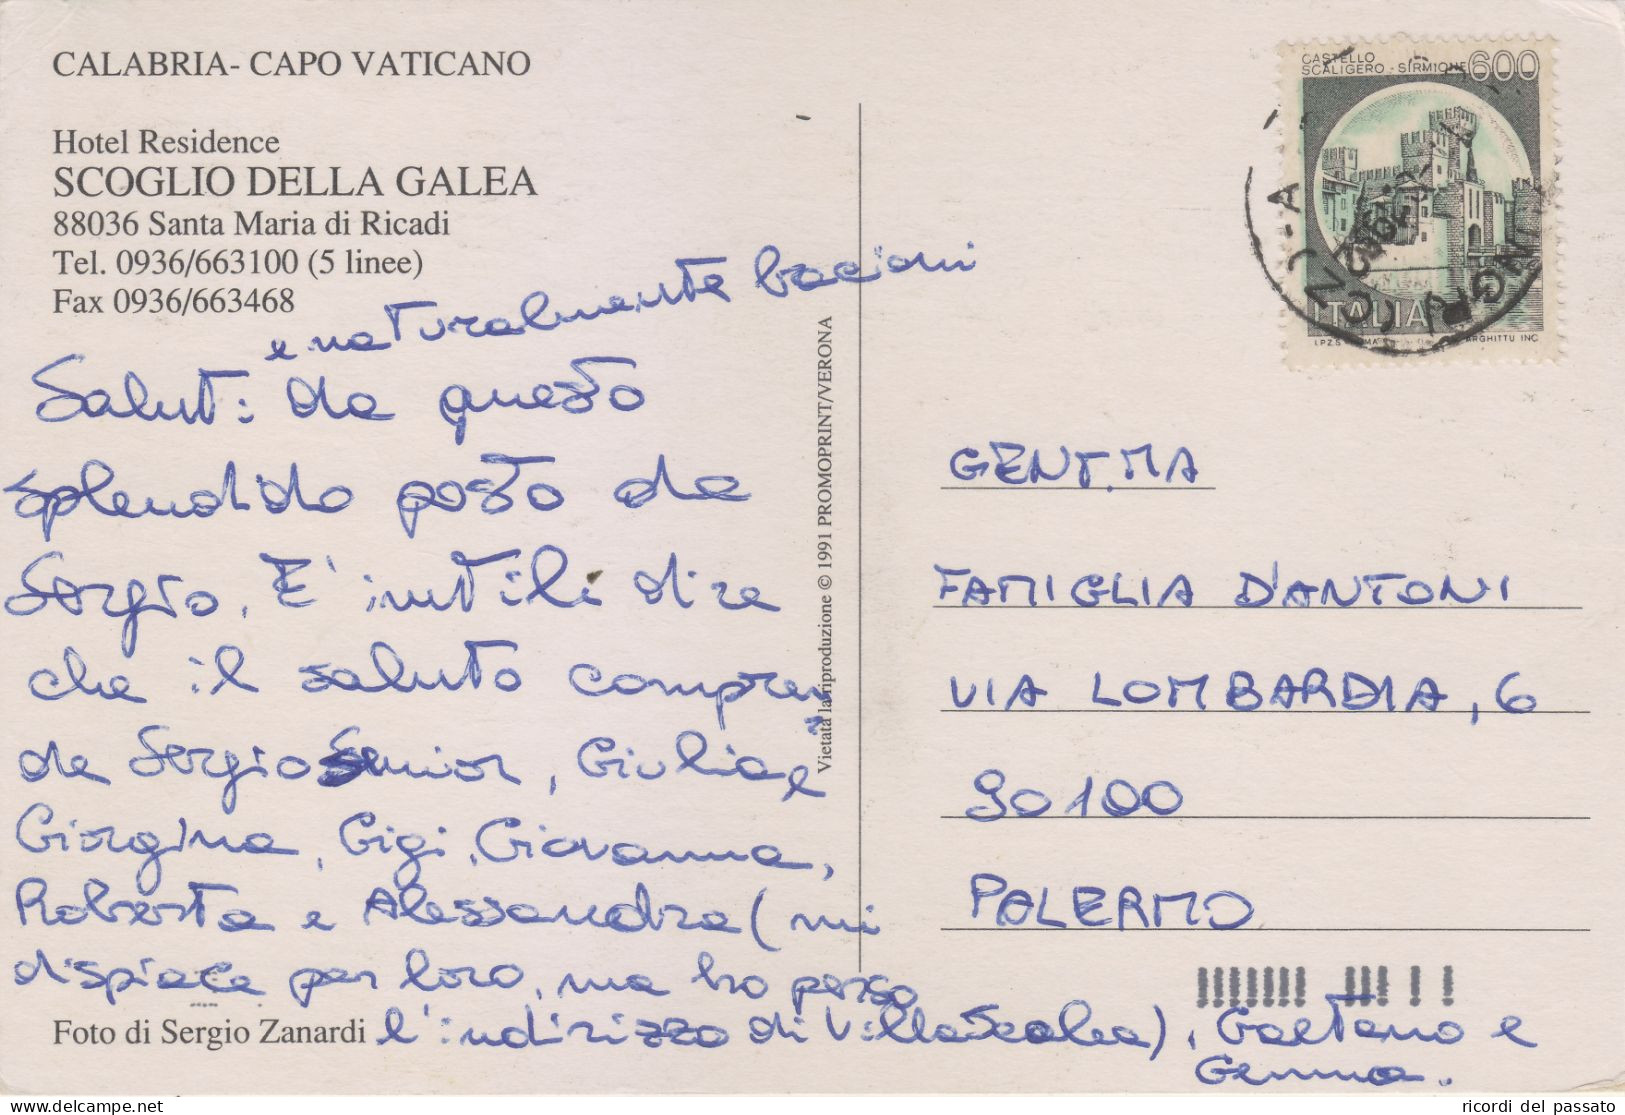 CALABRIA- CAPO VATICANO
Hotel Residence
SCOGLIO DELLA GALEA
88036 Santa Maria di Ricadi
Tel. 0936/663100 (5 linee)
Fax 0936/663468
e naturalmente bacioni
Saluti da questo
splendido posto da
Sergio. E' inutile dire
che il saluto compren
de Sergio Senior, Giulia e
Giorgina, Gigi, Giovanna,
Roberta e Alessandra (mi
dispiace per loro, ma ho perso
l'indirizzo di Villa Scalea), Gaetano e
Gemma.
Foto di Sergio Zanardi
Vietata la riproduzione © 1991 PROMOPRINT/VERONA
CASTELLO
SCALIGERO - SIRMIONE 600
ITALIA
GENT.MA
FAMIGLIA D'ANTONI
VIA LOMBARDIA, 6
90100
PALERMO
ricordi del passato